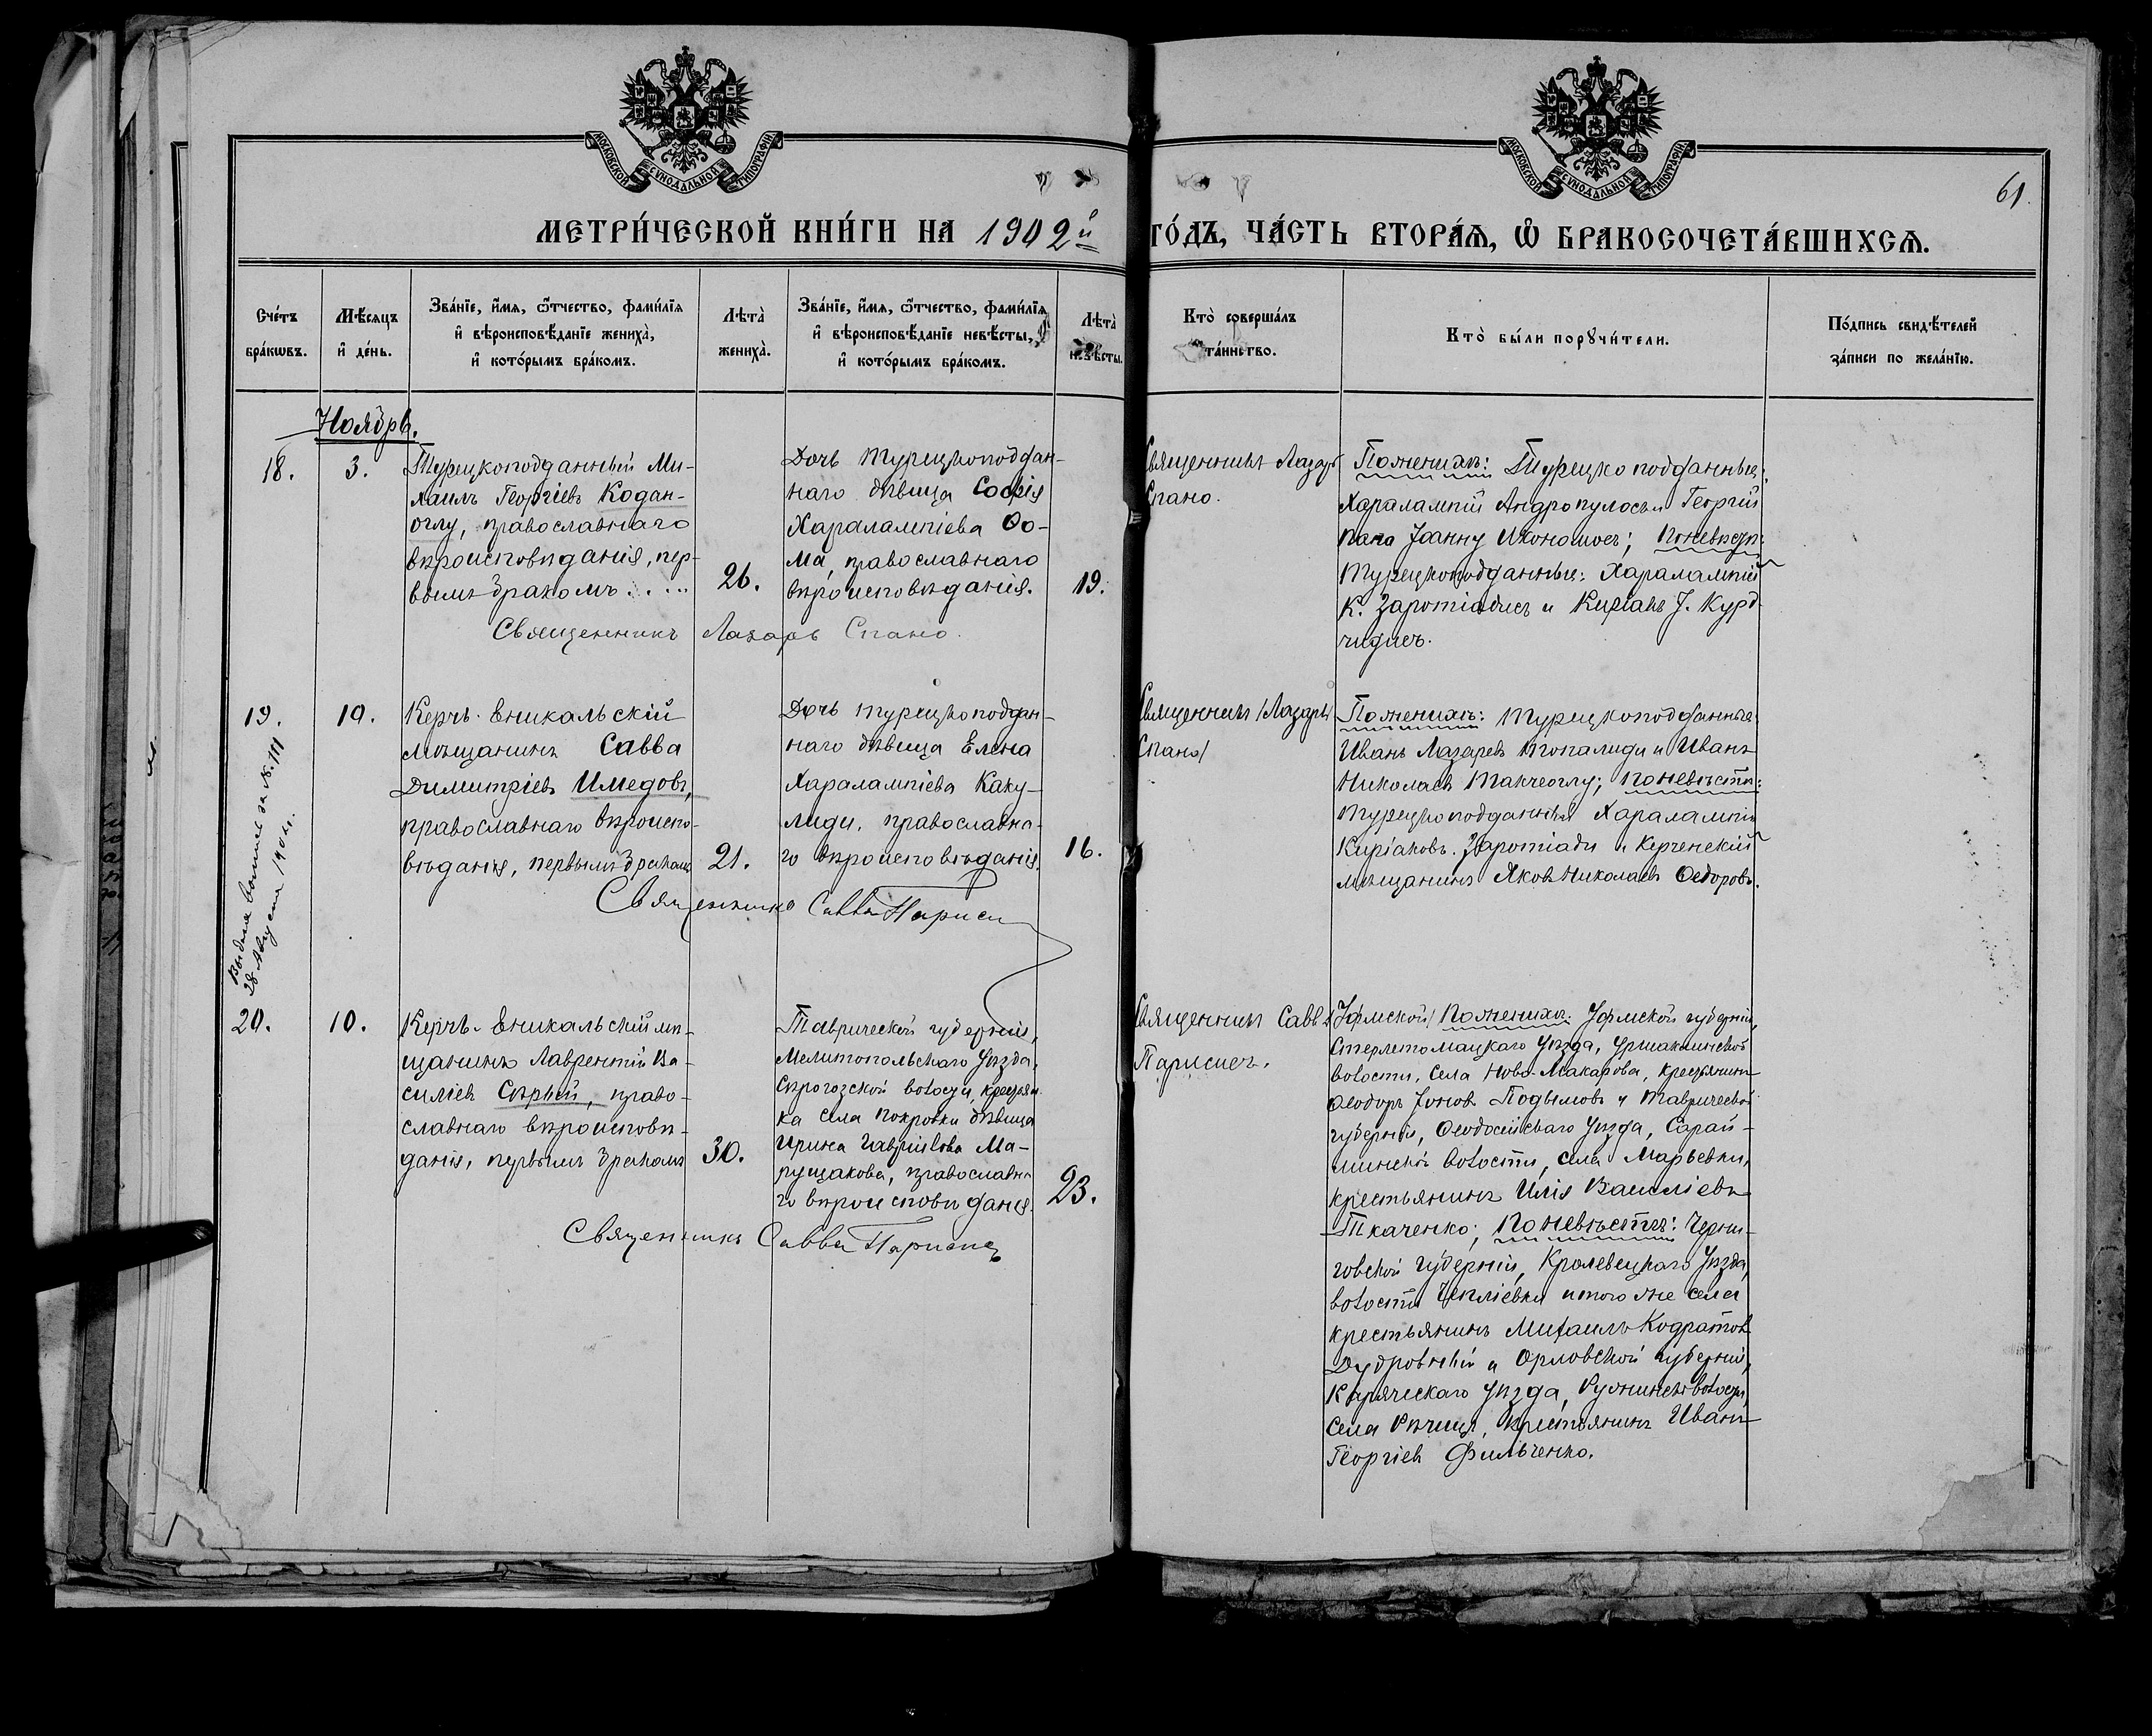 МОСКОВСКОЙ СѴНОДАЛЬНОЙ ТИПОГРАФІИ
МОСКОВСКОЙ СѴНОДАЛЬНОЙ ТИПОГРАФІИ
61.
МЕТРИ́ЧЕСКОЙ КНИ́ГИ НА 1902й
ГО́ДЪ, ЧА́СТЬ ВТОРА́Ѧ, Ѡ҆ БРАКОСОЧЕТА́ВШИХСѦ.
Сче́тъ
бра́кѡвъ.
Мѣ́сяцъ
и҆ де́нь.
Зва́нїе, и҆́мя, ѻ҆́тчество, фами́лїя
и҆ вѣроисповѣ́данїе жениха̀,
и҆ кото́рымъ бра́комъ.
Лѣта̀
жениха̀.
Зва́нїе, и҆́мя, ѻ҆́тчество, фами́лїя
и҆ вѣроисповѣ́данїе невѣ́сты,
и҆ кото́рымъ бра́комъ.
Лѣта̀
невѣ́сты.
Кто̀ соверша́лъ
та́инство.
Кто̀ бы́ли порꙋчи́тели.
По́дпись свидѣ́телей
за́писи по жела́нїю.
Ноябрь.
18.
3.
Турецкоподданный Ми-
хаилъ Георгіевъ Кодан-
оглу, православнаго
вѣроисповѣданія, пер-
вымъ бракомъ . . . .
26.
Дочь турецкоподдан-
наго дѣвица Софія
Харалампіева Ѳо-
ма, православнаго
вѣроисповѣданія.
19.
Священникъ Лазарь Спано.
Священникъ Лазарь
Спано.
По женихѣ: Турецкоподданные:
Харалампій Андропулосъ и Георгій
Папа Іоанну Икономосъ; по невѣстѣ:
Турецкоподданные: Харалампій
К. Заротіадисъ и Киріакъ І. Курд-
чидисъ.
19.
10.
Керчь-Еникальскій
мѣщанинъ Савва
Димитріевъ Имедовъ,
православнаго вѣроиспо-
вѣданія, первымъ бракомъ
21.
Дочь турецкоподдан-
наго дѣвица Елена
Харалампіева Каку-
лиди, православна-
го вѣроисповѣданія.
16.
Священникъ Савва Париси
Священникъ /Лазарь
Спано/
По женихѣ: Турецкоподданные
Иванъ Лазаревъ Топалиди и Иванъ
Николаевъ Такчеоглу; по невѣстѣ:
Турецкоподданный Харалампій
Киріаковъ Заротіади и Керченскій
мѣщанинъ Яковъ Николаевъ Ѳедоровъ.
Выдана выпись за №. 111
28 Августа 1904 г.
20.
10.
Керчь-Еникальскій мѣ-
щанинъ Лаврентій Ва-
силіевъ Сѣрый, право-
славнаго вѣроисповѣ-
данія, первымъ бракомъ
30.
Таврической губерніи,
Мелитопольскаго уѣзда,
Сѣрогозской волости, крестьян
ка села Покровки дѣвица
Ирина Гавриилова Ма-
рущакова, православна
го вѣроисповѣданія.
23.
Священникъ Савва Парисисъ
Священникъ Савва
Парисисъ.
Уфмской/ По женихѣ: Уфмской губерніи,
Стерлетомацкаго уѣзда, Уршакминской
волости, села Ново-Макарова, крестьянинъ
Ѳеодоръ Іоновъ Подымовъ и Таврической
губерніи, Ѳеодосійскаго уѣзда, Сарай-
минской волости, села Марьевки,
крестьянинъ Илія Василіевъ
Ткаченко; по невѣстѣ: Черни-
говской губерніи, Кролевецкаго уѣзда,
волости Чепліевки и того же села
крестьянинъ Михаилъ Кодратовъ
Дубровскій и Орловской губерніи,
Каряческаго уѣзда, волости,
села Рѣчицы, крестьянинъ Иванъ
Георгіевъ Фильченко.